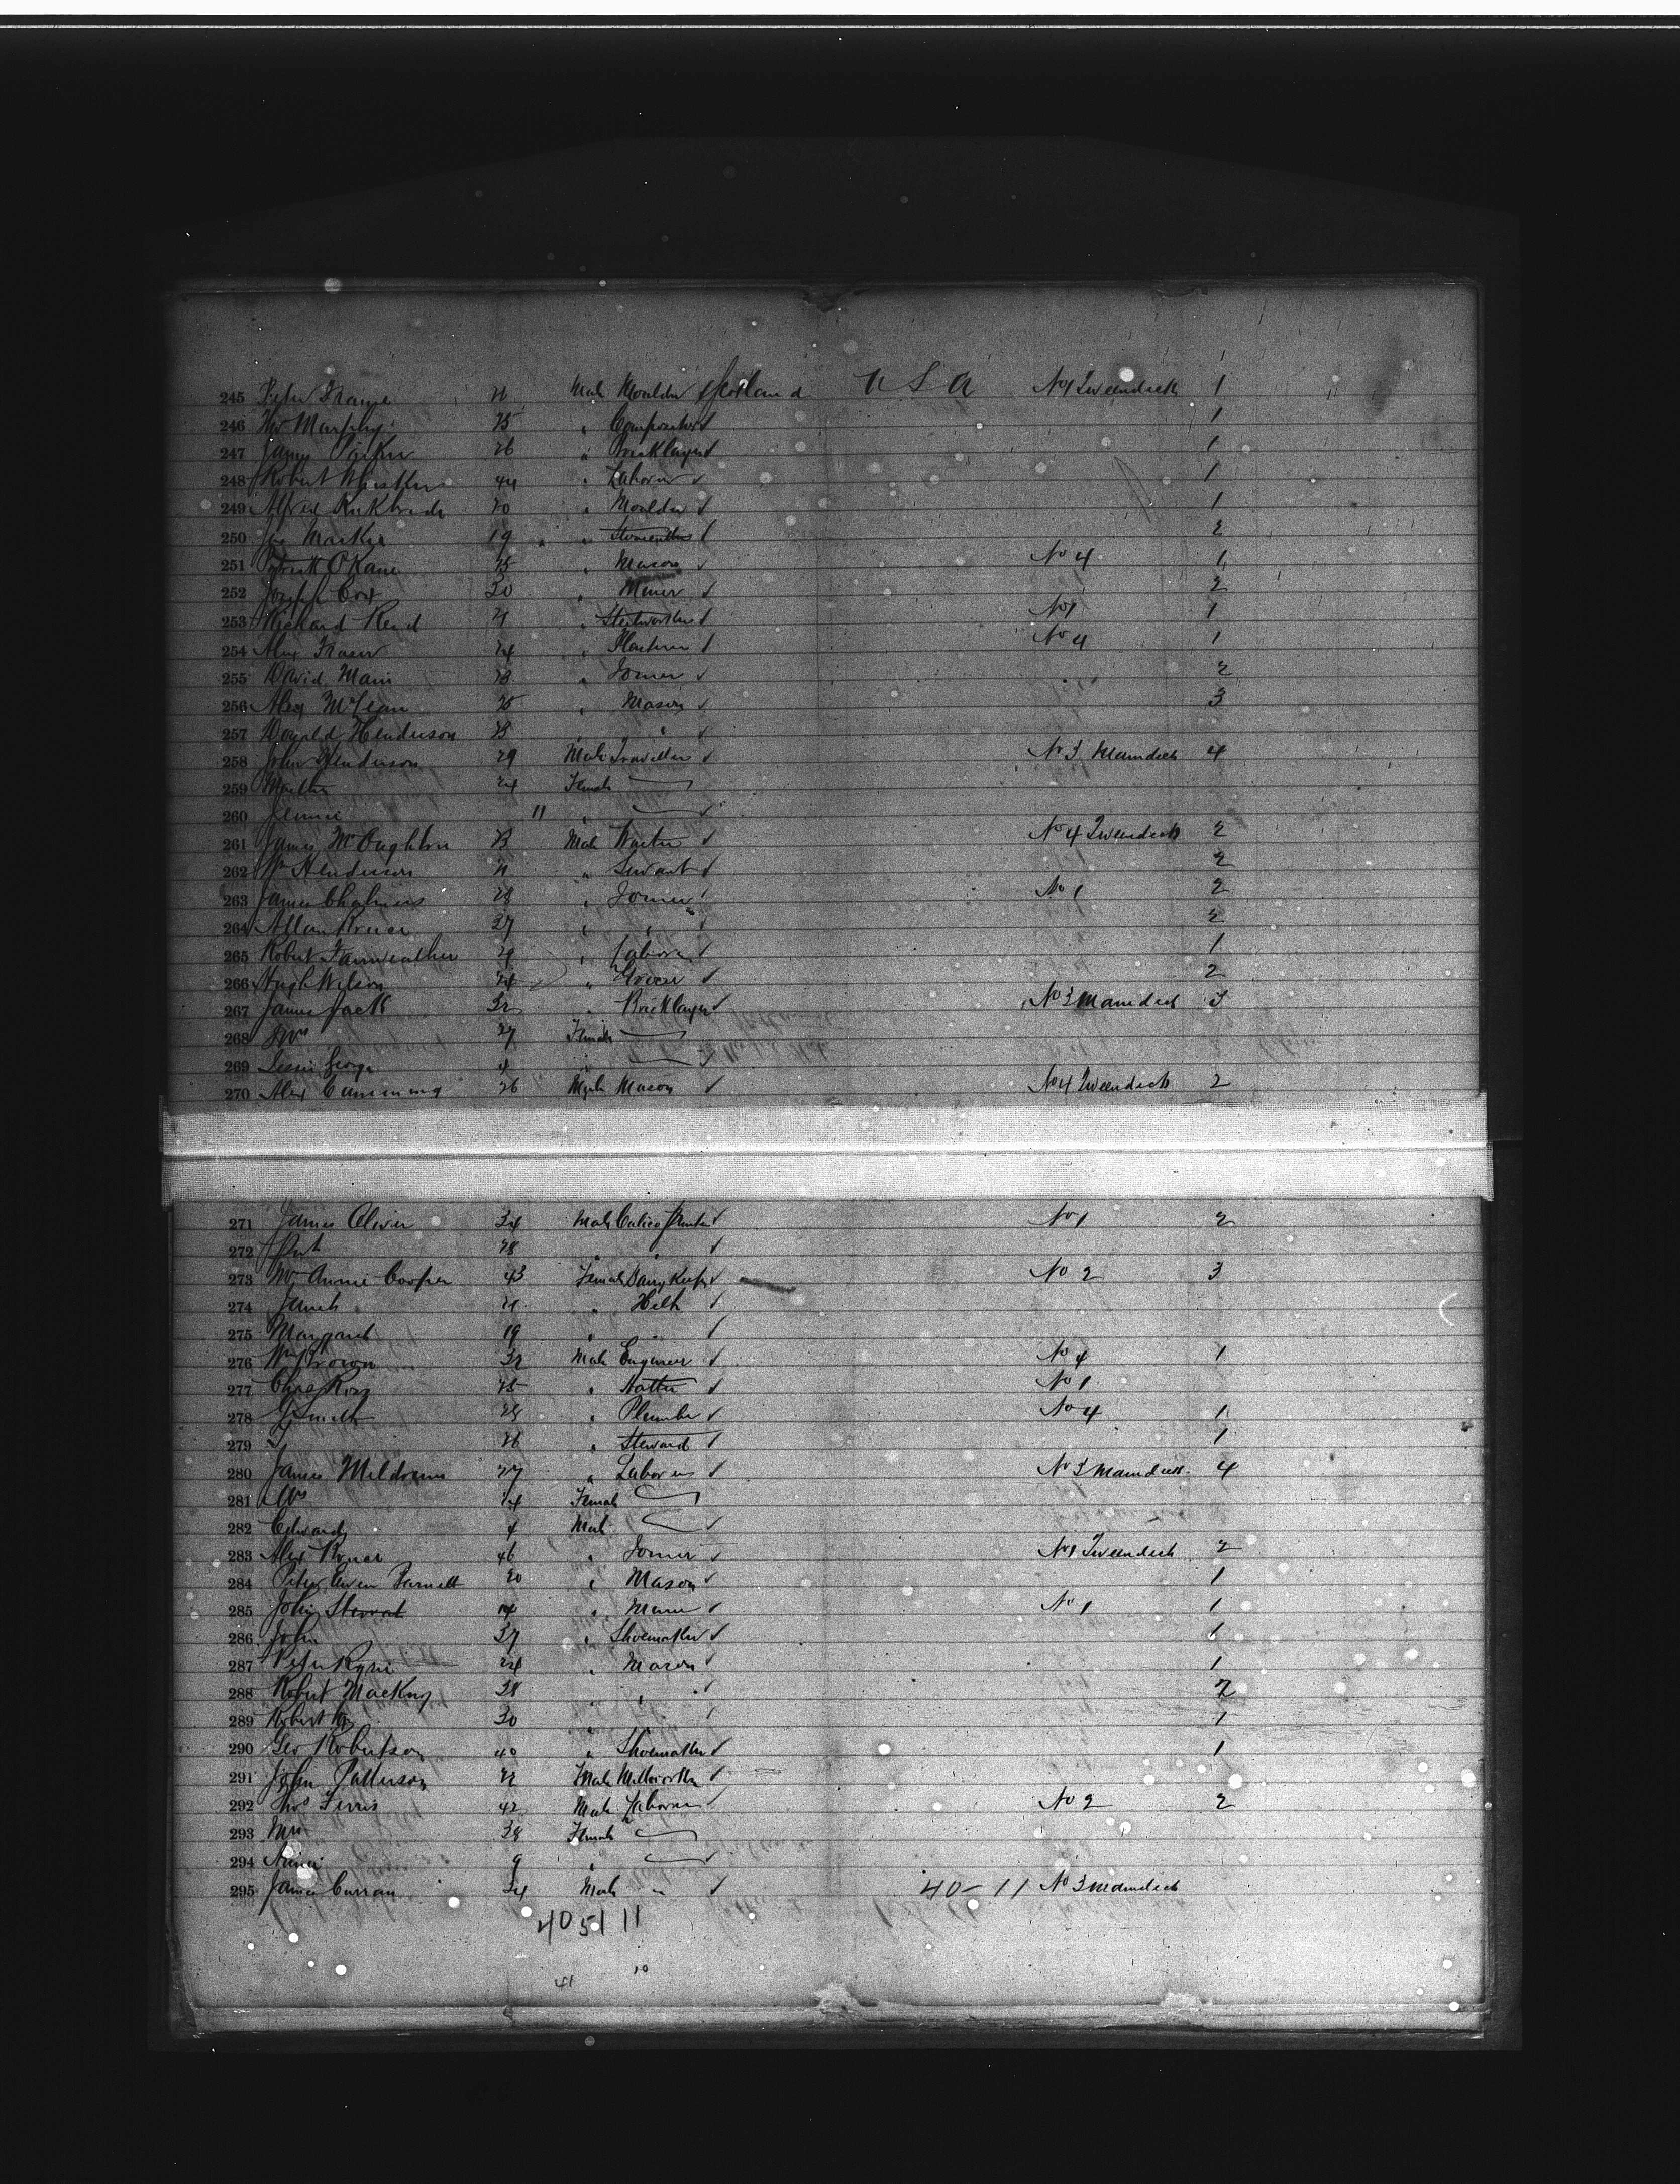 245 Peter Frame 21 Male Moulder Scotland U S A No 1 Tweendeck 1
246 Wm Murphy 25 " Compositor ✓ 1
247 James 26 " Bricklayer ✓ 1
248 Robert 44 " Laborer ✓ 1
249 Alfred Kirkbride 20 " Moulder ✓ 1
250 Mackie 19 " " Stonecutter ✓ 2
251 Patrick O'Kane 25 " Mason ✓ No 4 1
252 Joseph Cox 30 " Miner ✓ 2
253 Richard Reid 21 " Steelworker ✓ No 1 1
254 Alex Fraser 24 " Plasterer ✓ No 4 1
255 David Main 23 " Joiner ✓ 2
256 Alex McLean 25 " Mason ✓ 3
257 Donald Henderson 23 " " ✓
258 John Henderson 29 Male Traveller ✓ No 3 Maindeck 4
259 Martha 24 Female
260 Jennie 11 " ✓
261 James McOughtrie 23 Male Waiter ✓ No 4 Tweendeck 2
262 Wm Henderson 21 " Servant ✓ 2
263 James Chalmers 28 " Joiner ✓ No 1 2
264 Allan Bruce 27 " " ✓ 2
265 Robert Fairweather 29 " Laborer ✓ 1
266 Hugh Wilson 24 " Grocer ✓ 2
267 James Jack 32 " Bricklayer ✓ No 3 Maindeck 3
268 Mrs 27 Female
269 George 4 " ✓
270 Alex Cumming 26 Male Mason ✓ No 4 Tweendeck 2
271 James Oliver 34 Male Calico Printer ✓ No 1 2
272 28 " " ✓
273 Mrs Annie Cooper 43 Female Dairy Keeper ✓ No 2 3
274 Janet 21 " Help ✓
275 Margaret 19 " " ✓
276 Wm Brown 32 Male Engineer ✓ No 4 1
277 Chas Ross 25 " Hatter ✓ No 1
278 G Smith 28 " Plumber ✓ No 4 1
279 26 " Steward ✓ 1
280 James Meldrum 27 " Laborer ✓ No 3 Maindeck 4
281 Mrs 24 Female
282 Edward 4 Male ✓
283 Alex Bruce 46 " Joiner ✓ No 1 Tweendeck 2
284 Peter Ewen Farnell 20 " Mason ✓ 1
285 John Sterrat " ✓ No 1 1
286 John 37 " Shoemaker ✓ 1
287 Peter 24 " Mason ✓ 1
288 Robert Mackay 38 " " ✓ 2
289 Robert 30 " ✓ 1
290 Geo Robertson 40 " Shoemaker ✓ 1
291 John Patterson 22 Male Millworker ✓
292 Thos Ferris 42 Male Laborer ✓ No 2 2
293 Mrs 38 Female
294 Annie 9 " ✓
295 James Curran 34 Male " ✓ 40-11 No 3 Maindeck
405 11
41 10